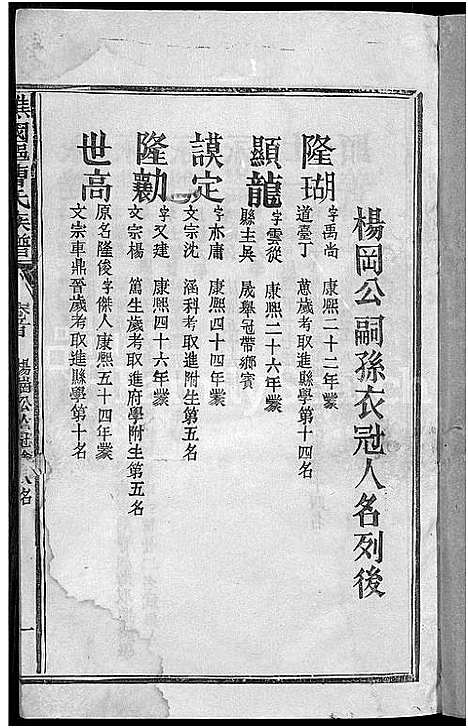 楊岡公嗣孫衣冠人名列後
隆瑚 字禹尚 康熙二十二年蒙
道臺丁 蒽歲考取進縣學第十四名
顯龍 字雲從 康熙二十六年蒙
縣主吳 晟舉冠帶鄉賓
謨定 字亦庸 康熙四十四年蒙
文宗沈 涵科考取進附生第五名
隆勷 字又建 康熙四十六年蒙
文宗楊 篤生歲考取進府學附生第五名
世高 原名隆俊字傑人康熙五十四年蒙
文宗車鼎晉歲考取進縣學第十名
譙國 曹氏族譜
卷首 楊岡公 八名
一